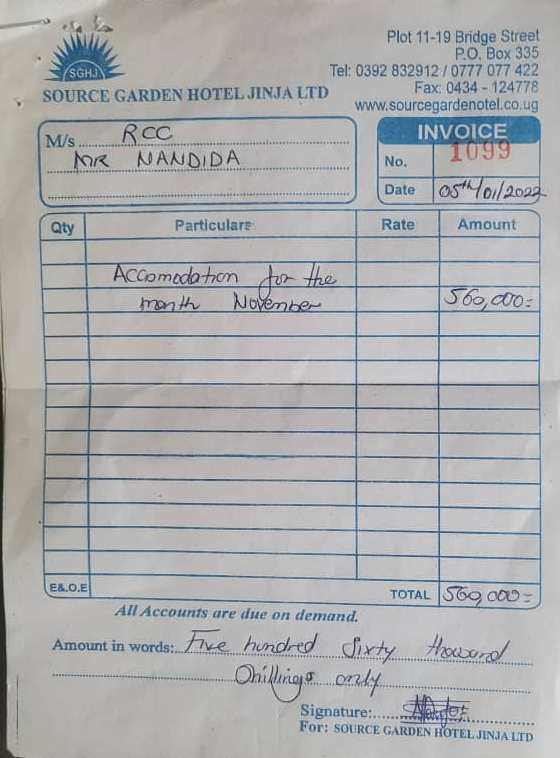 SGHJ
SOURCE GARDEN HOTEL JINJA LTD
Plot 11-19 Bridge Street
P.O. Box 335
Tel: 0392 832912 / 0777 077 422
Fax: 0434 - 124778
www.sourcegardenotel.co.ug
M/s RCC
MR NANDIDA
INVOICE
No. 1099
Date 05th/01/2022
Qty Particulars Rate Amount
Accomodation for the
month November 560,000=
E&.O.E TOTAL 560,000=
All Accounts are due on demand.
Amount in words: Five hundred Sixty thousand
Shillings only
Signature:
For: SOURCE GARDEN HOTEL JINJA LTD